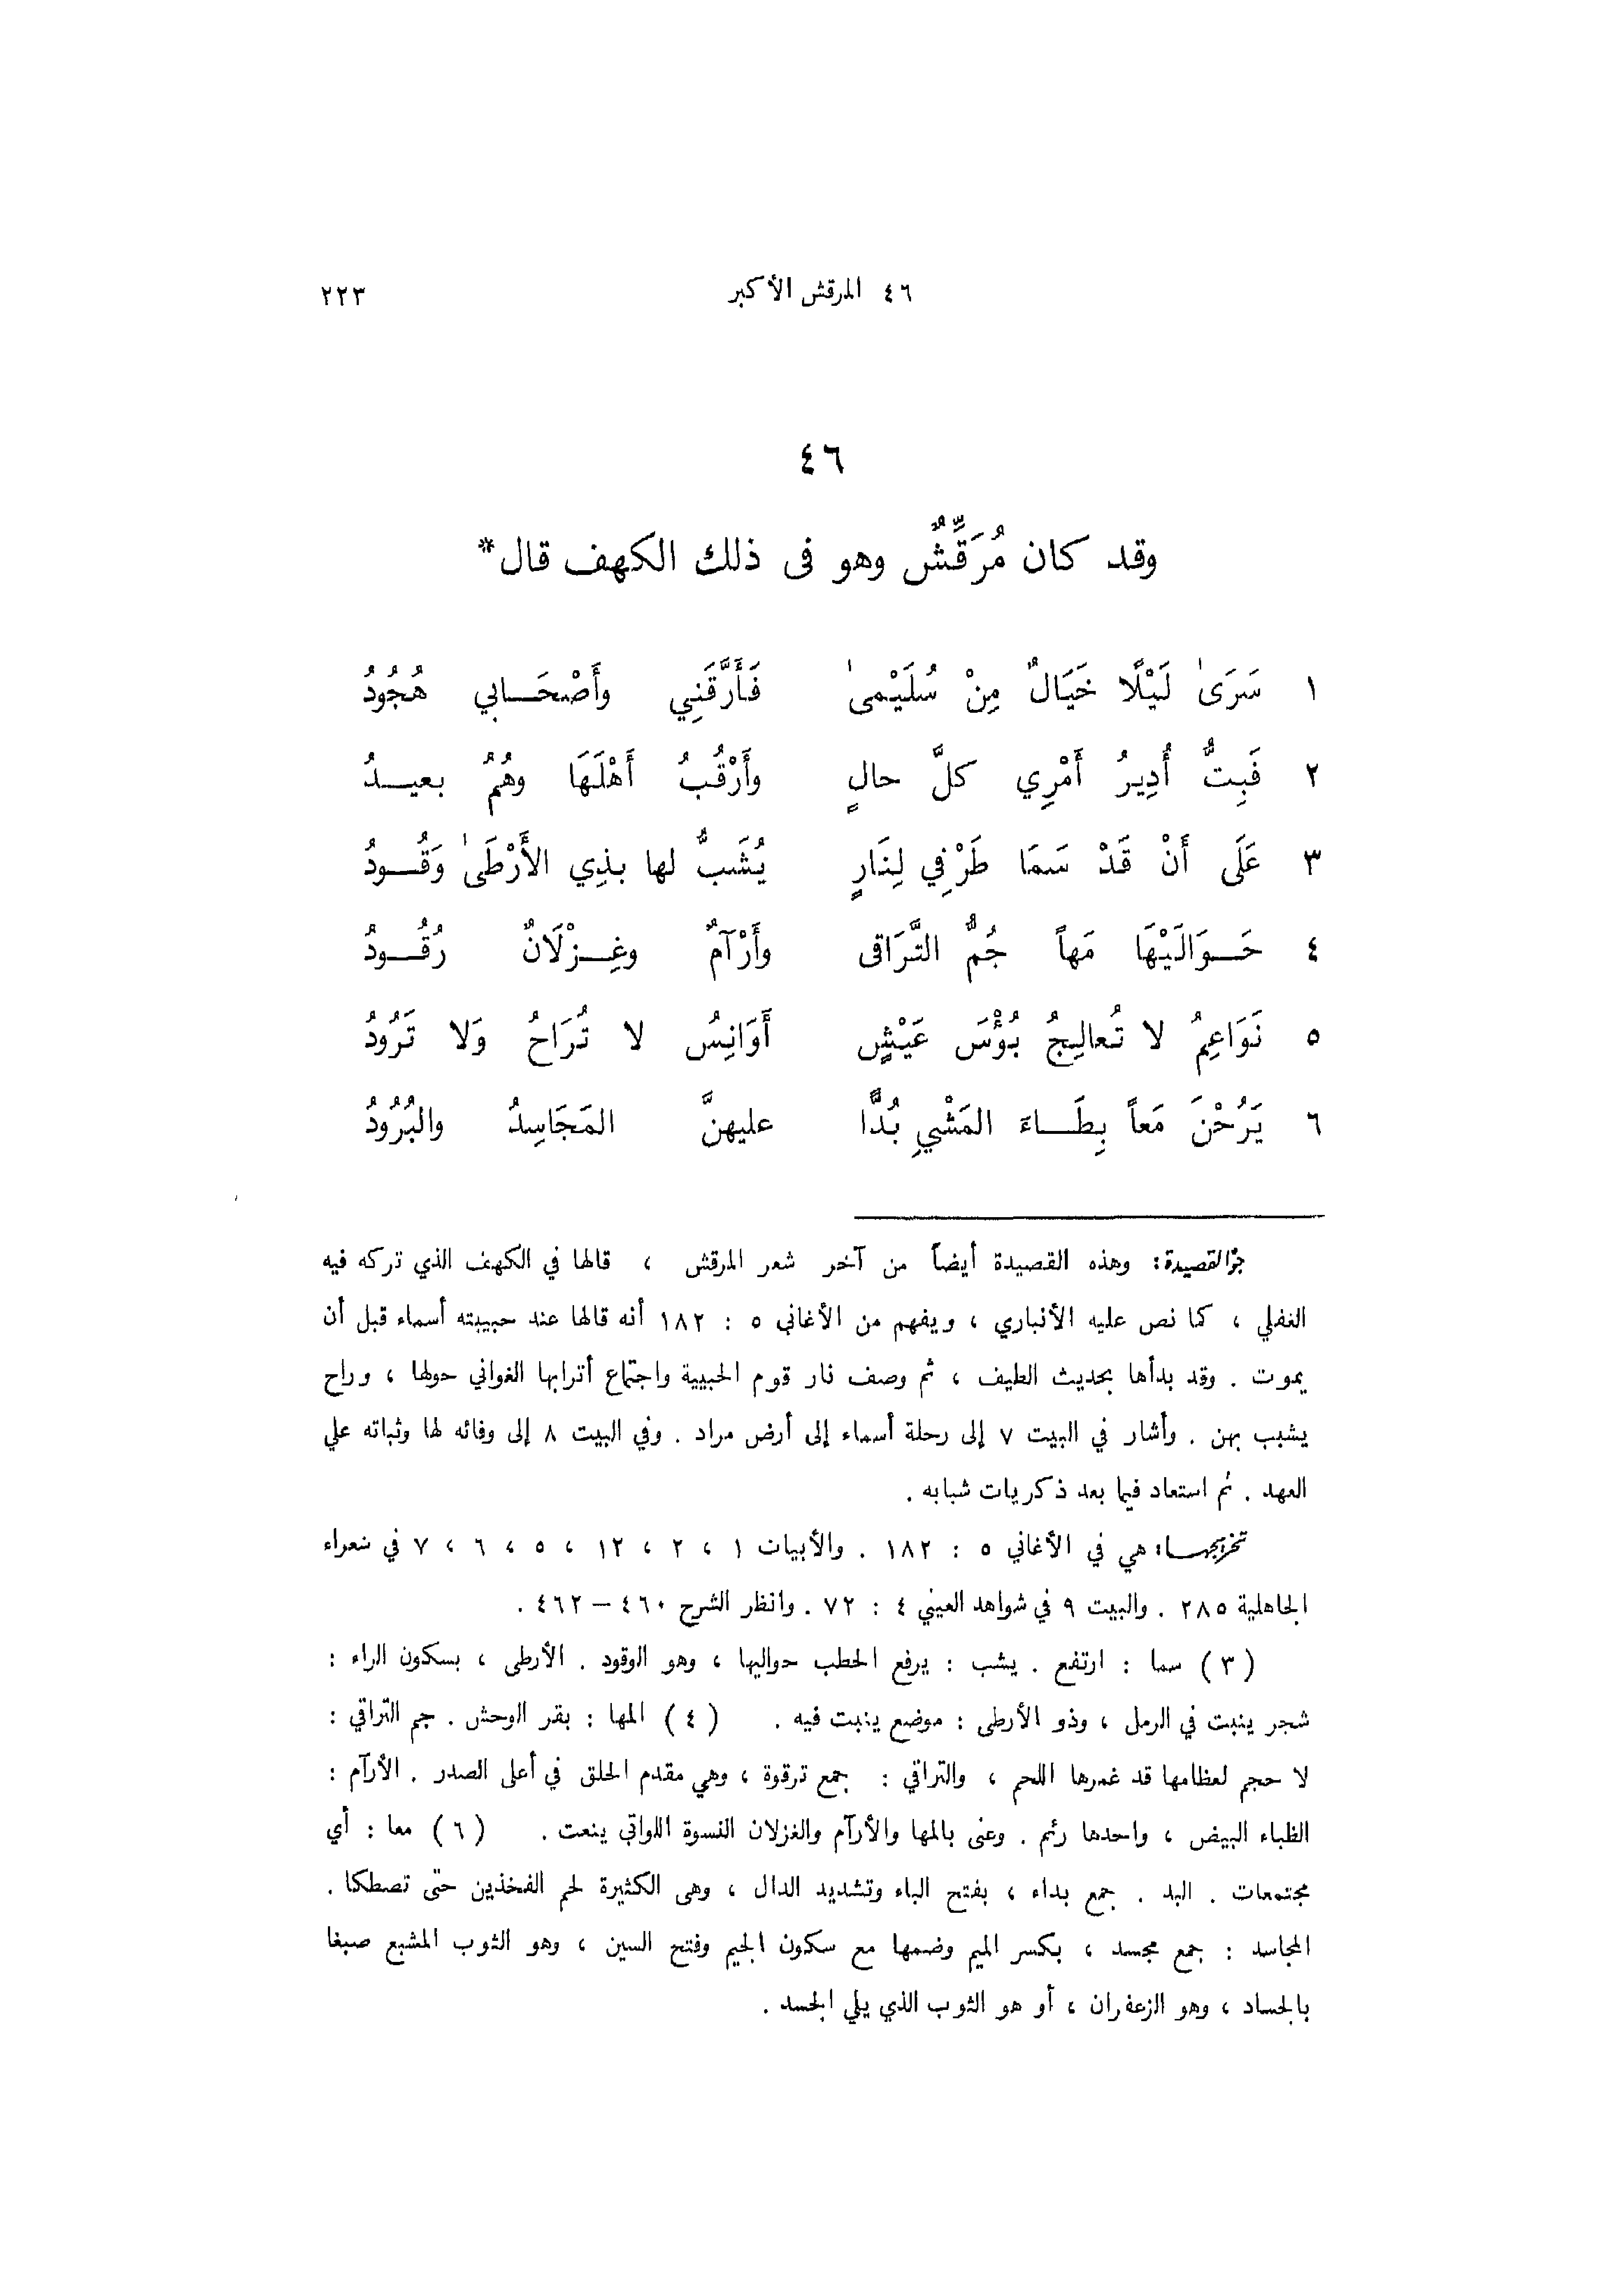 ٤٦ المرقش الأكبر ٢٢٣
٤٦
وقد كان مُرَقِّشٌ وهو فى ذلك الكهف قال*
١ سَرَىٰ لَيْلًا خَيَالٌ مِنْ سُلَيْمىٰ فَأَرَّقَنِي وأَصْحَابي هُجُودُ
٢ فَبِتُّ أُدِيرُ أَمْرِي كلَّ حالٍ وأَرْقُبُ أَهْلَهَا وهُمُ بعيدُ
٣ عَلَى أَنْ قَدْ سَمَا طَرْفِي لِنَارٍ يُشَبُّ لها بذِي الأَرْطَىٰ وَقُودُ
٤ حَوَالَيْهَا مَهاً جُمُّ التَّرَاقى وأَرْآمٌ وغِزْلَانٌ رُقُودُ
٥ نَوَاعِمُ لا تُعالِجُ بُؤْسَ عَيْشٍ أَوَانِسُ لا تُرَاحُ وَلا تَرُودُ
٦ يَرُحْنَ مَعاً بِطَاءَ المَشْيِ بُدًّا عليهنَّ المَجَاسِدُ والبُرُودُ
جوّ القصيدة: وهذه القصيدة أيضاً من آخر شعر المرقش ، قالها في الكهف الذي تركه فيه
الغفلي ، كما نص عليه الأنباري ، ويفهم من الأغاني ٥ : ١٨٢ أنه قالها عند حبيبته أسماء قبل أن
يموت . وقد بدأها بحديث الطيف ، ثم وصف نار قوم الحبيبة واجتماع أترابها الغواني حولها ، وراح
يشبب بهن . وأشار في البيت ٧ إلى رحلة أسماء إلى أرض مراد . وفي البيت ٨ إلى وفائه لها وثباته علي
العهد . ثم استعاد فيما بعد ذكريات شبابه .
تخريجها: هي في الأغاني ٥ : ١٨٢ . والأبيات ١ ، ٢ ، ١٢ ، ٥ ، ٦ ، ٧ في شعراء
الجاهلية ٢٨٥ . والبيت ٩ في شواهد العيني ٤ : ٧٢ . وانظر الشرح ٤٦٠ — ٤٦٢ .
( ٣ ) سما : ارتفع . يشب : يرفع الحطب حواليها ، وهو الوقود . الأرطى ، بسكون الراء :
شجر ينبت في الرمل ، وذو الأرطى : موضع ينبت فيه . ( ٤ ) المها : بقر الوحش . جم التراقي :
لا حجم لعظامها قد غمرها اللحم ، والتراقي : جمع ترقوة ، وهي مقدم الحلق في أعلى الصدر . الأرآم :
الظباء البيض ، واحدها رئم . وعنى بالمها والأرآم والغزلان النسوة اللواتي ينعت . ( ٦ ) معا : أي
مجتمعات . البد . جمع بداء ، بفتح الباء وتشديد الدال ، وهى الكثيرة لحم الفخذين حتى تصطكا .
المجاسد : جمع مجسد ، بكسر الميم وضمها مع سكون الجيم وفتح السين ، وهو الثوب المشبع صبغا
بالجساد ، وهو الزعفران ، أو هو الثوب الذي يلي الجسد .